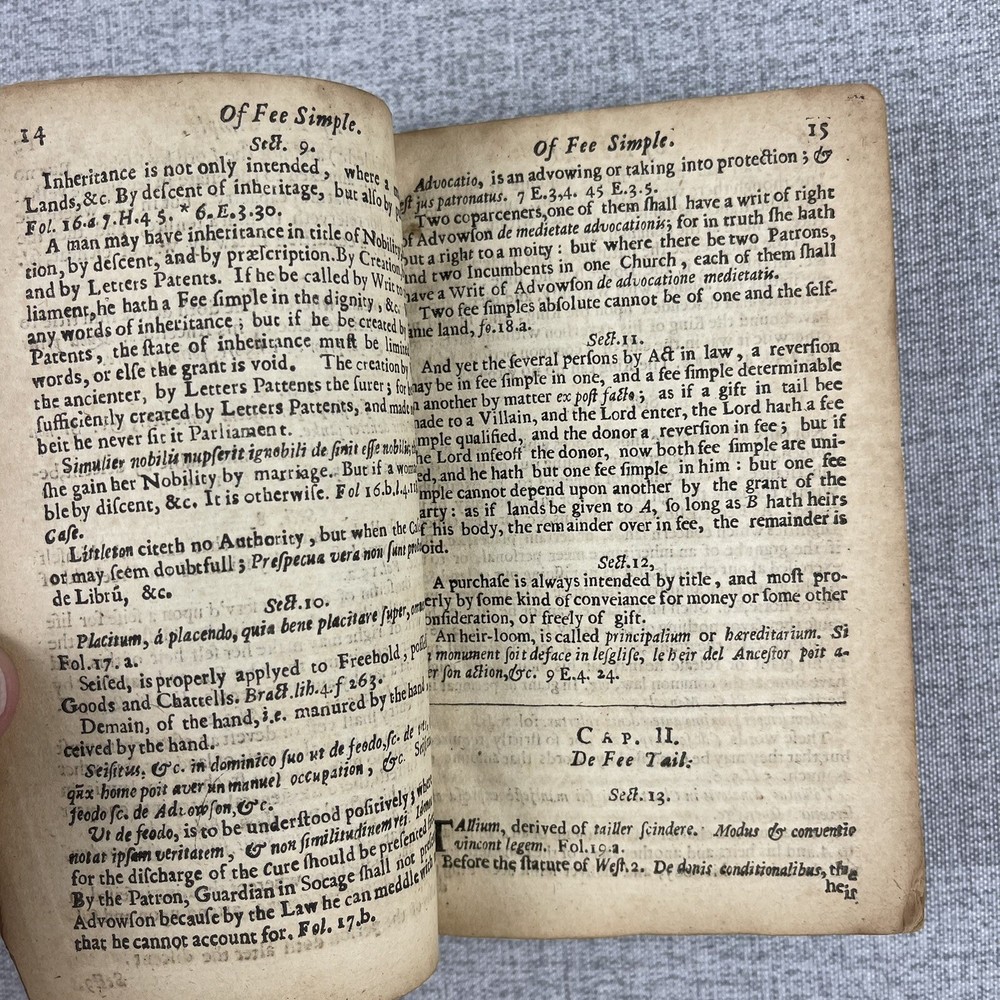 14
Of Fee Simple.
Sect. 9.
Inheritance is not only intended, where a
Lands, &c. By descent of inheritage, but also by
Fol. 16.a.7.H.4 5. * 6. E.3.30.
A man may have inheritance in title of Nobility
tion, by descent, and by præscription. By Creation
and by Letters Patents. If he be called by Writ to
liament, he hath a Fee simple in the dignity, &c.
any words of inheritance; but if he be created by
Patents, the state of inheritance must be limi
words, or else the grant is void. The creation by
the ancienter, by Letters Pattents the surer; for
sufficiently created by Letters Pattents, and made
beit he never sit it Parliament.
Simulier nobilis nupserit ignobili desinit esse nobilis,
she gain her Nobility by marriage. But if a wom
ble by discent, &c. It is otherwise. Fol 16.b.l.4.
Case.
Littleton citeth no Authority, but when the Ca
or may seem doubtfull; Prespecua vera non sunt prob
de Librũ, &c.
Sect. 10.
Placitum, á placendo, quia bene placitare super, omn
Fol. 17. a.
Seised, is properly applyed to Freehold, poss
Goods and Chattells. Bract. lib. 4. f 263.
Demain, of the hand, i.e. manured by the hand
ceived by the hand.
Seisitus, &c. in dominico suo ut de feodo, sc. de
qũx home poit aver un manuel occupation, &c. Seisi
feodo sc. de Advowson, &c.
Ut de feodo, is to be understood positively; where
notat ipsam veritatem, & non similitudinem rei.
for the discharge of the Cure should be presented
By the Patron, Guardian in Socage shall not pres
Advowson because by the Law he can meddle with
that he cannot account for. Fol. 17.b.
Of Fee Simple.
15
Advocatio, is an advowing or taking into protection; &
est jus patronatus. 7 E.3,4. 45 E.3.5.
Two coparceners, one of them shall have a writ of right
of Advowson de medietate advocationis; for in truth she hath
but a right to a moity: but where there be two Patrons,
and two Incumbents in one Church, each of them shall
have a Writ of Advowson de advocatione medietatis.
Two fee simples absolute cannot be of one and the self-
ame land, fo.18.a.
Sect. 11.
And yet the several persons by Act in law, a reversion
may be in fee simple in one, and a fee simple determinable
n another by matter ex post facto; as if a gift in tail bee
made to a Villain, and the Lord enter, the Lord hath a fee
imple qualified, and the donor a reversion in fee; but if
he Lord infeoff the donor, now both fee simple are uni-
ed, and he hath but one fee simple in him: but one fee
imple cannot depend upon another by the grant of the
arty: as if lands be given to A, so long as B hath heirs
f his body, the remainder over in fee, the remainder is
oid.
Sect. 12,
A purchase is always intended by title, and most pro-
erly by some kind of conveiance for money or some other
onsideration, or freely of gift.
An heir-loom, is called principalium or hæreditarium. Si
monument soit deface in lesglise, le heir del Ancestor poit a-
er son action, &c. 9 E.4. 24.
CAP. II.
De Fee Tail.
Sect. 13.
TAllium, derived of tailler scindere. Modus & conventio
vincont legem. Fol. 19.a.
Before the stature of West. 2. De donis conditionalibus, the
heir